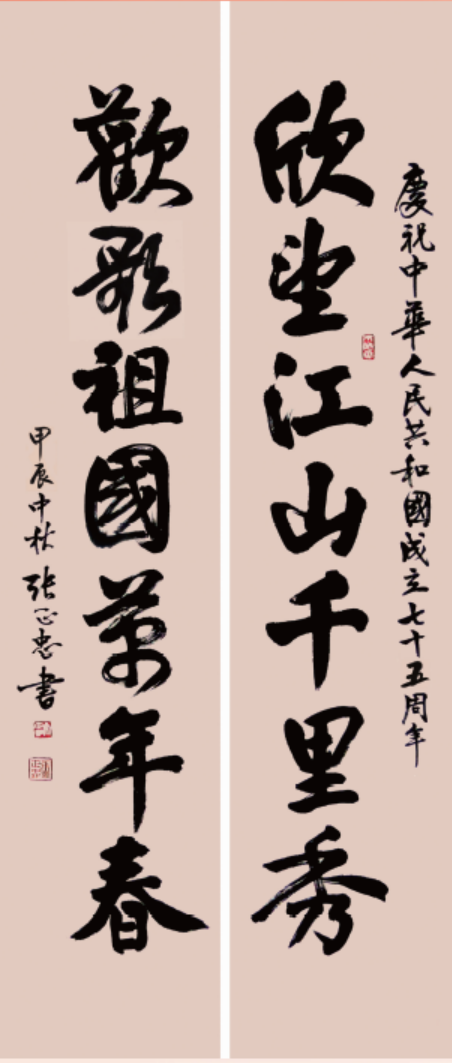 慶祝中華人民共和國成立七十五周年
欣望江山千里秀
歡歌祖國萬年春
甲辰中秋 張正忠書